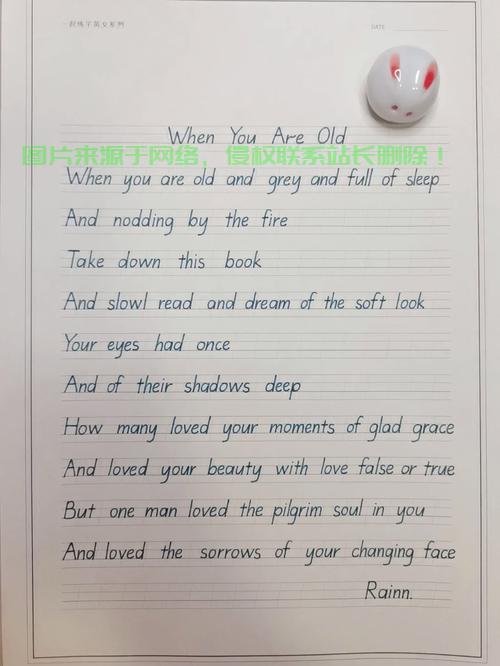 一起练字英文系列
DATE
When You Are Old
图片来源于网络，侵权联系站长删除！
When you are old and grey and full of sleep
And nodding by the fire
Take down this book
And slowl read and dream of the soft look
Your eyes had once
And of their shadows deep
How many loved your moments of glad grace
And loved your beauty with love false or true
But one man loved the pilgrim soul in you
And loved the sorrows of your changing face
Rainn.